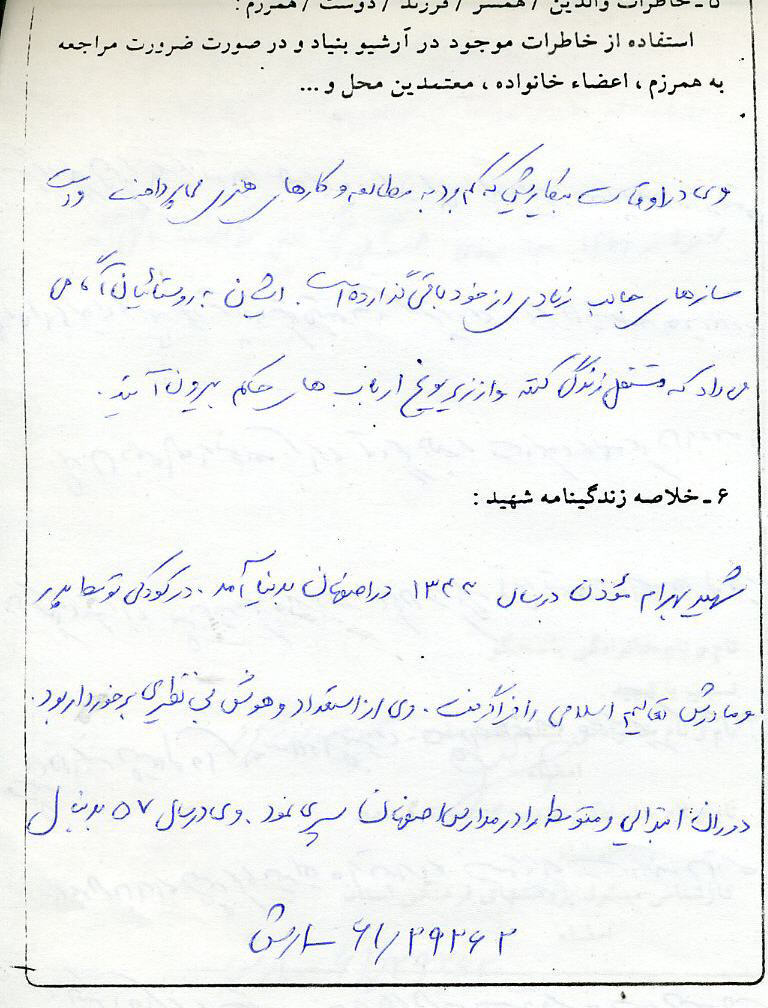 ۵ ـ خاطرات والدین / همسر / فرزند / دوست / همرزم :
استفاده از خاطرات موجود در آرشیو بنیاد و در صورت ضرورت مراجعه
به همرزم ، اعضاء خانواده ، معتمدین محل و ...
وی در اوقات بیکاریش که کم بود به مطالعه و کارهای هنری می پرداخت و دست
سازهای جالب زیادی از خود باقی گذارده است . ایشان به روستائیان آگاهی
می داد که مستقل زندگی کنند و از زیر یوغ ارباب های حاکم بیرون آیند .
۶ ـ خلاصه زندگینامه شهید :
شهید بهرام مؤذن در سال ۱۳۴۳ در اصفهان بدنیا آمد . در کودکی توسط پدر
و مادرش تعالیم اسلامی را فراگرفت . وی از استعداد و هوش بی نظیری برخوردار بود .
دوران ابتدائی و متوسطه را در مدارس اصفهان سپری نمود . وی در سال ۵۷ بدنبال
۶۱/۳۹۲۶۳